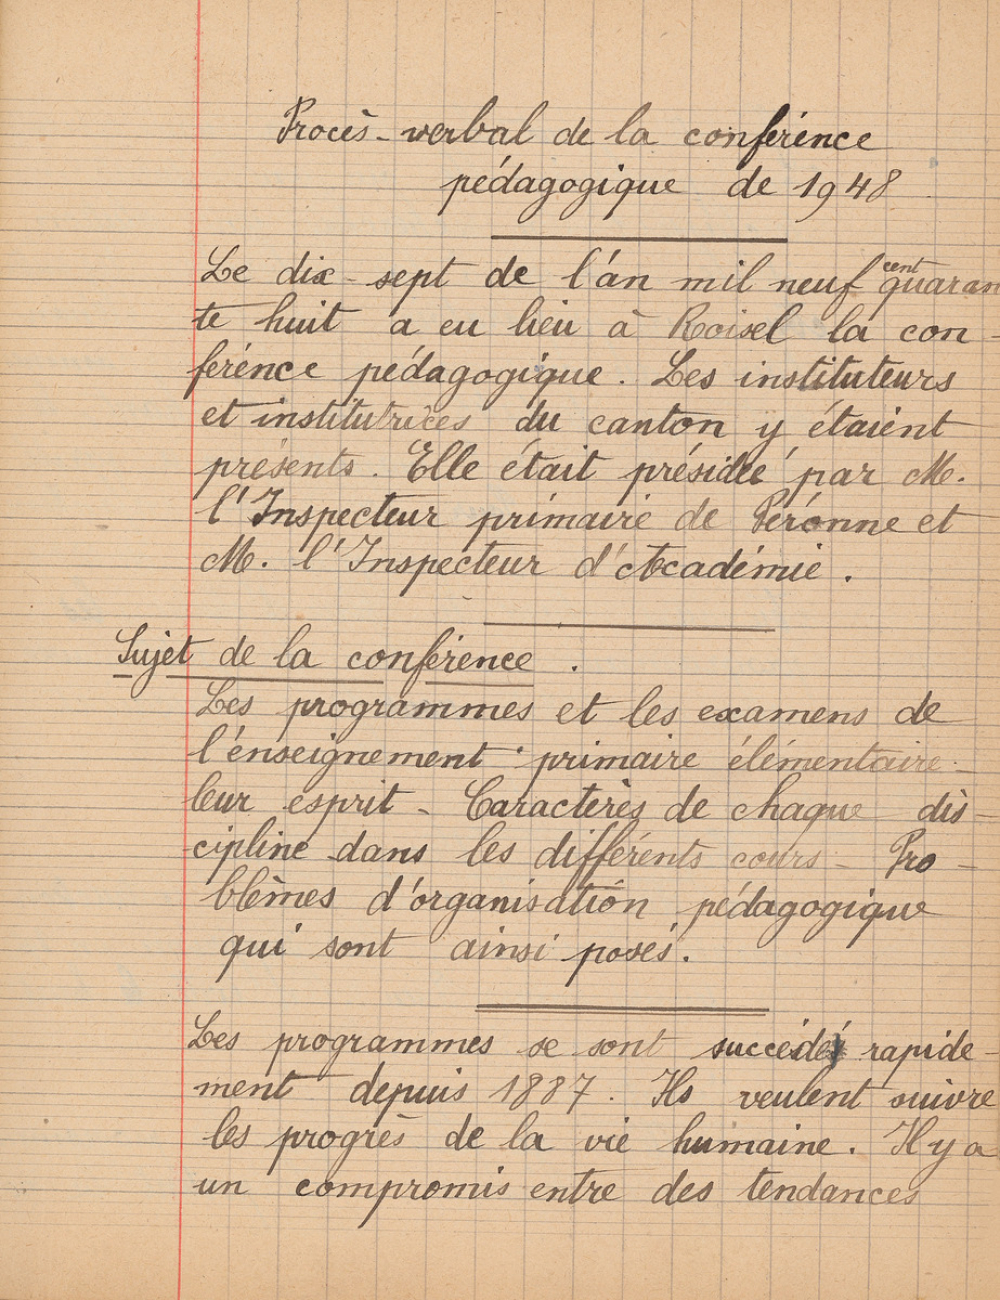 Procès-verbal de la conférence
pédagogique de 1948
Le dix-sept de l'an mil neuf cent quaran
te huit a eu lieu à Roisel la con-
férence pédagogique. Les instituteurs
et institutrices du canton y étaient
présents. Elle était présidée par M.
l'Inspecteur primaire de Péronne et
M. l'Inspecteur d'Académie.
Sujet de la conférence.
Les programmes et les examens de
l'enseignement primaire élémentaire -
leur esprit - Caractères de chaque dis-
cipline dans les différents cours - Pro-
blèmes d'organisation pédagogique
qui sont ainsi posés.
Les programmes se sont succédé rapide-
ment depuis 1887. Ils veulent suivre
les progrès de la vie humaine. Il y a
un compromis entre des tendances